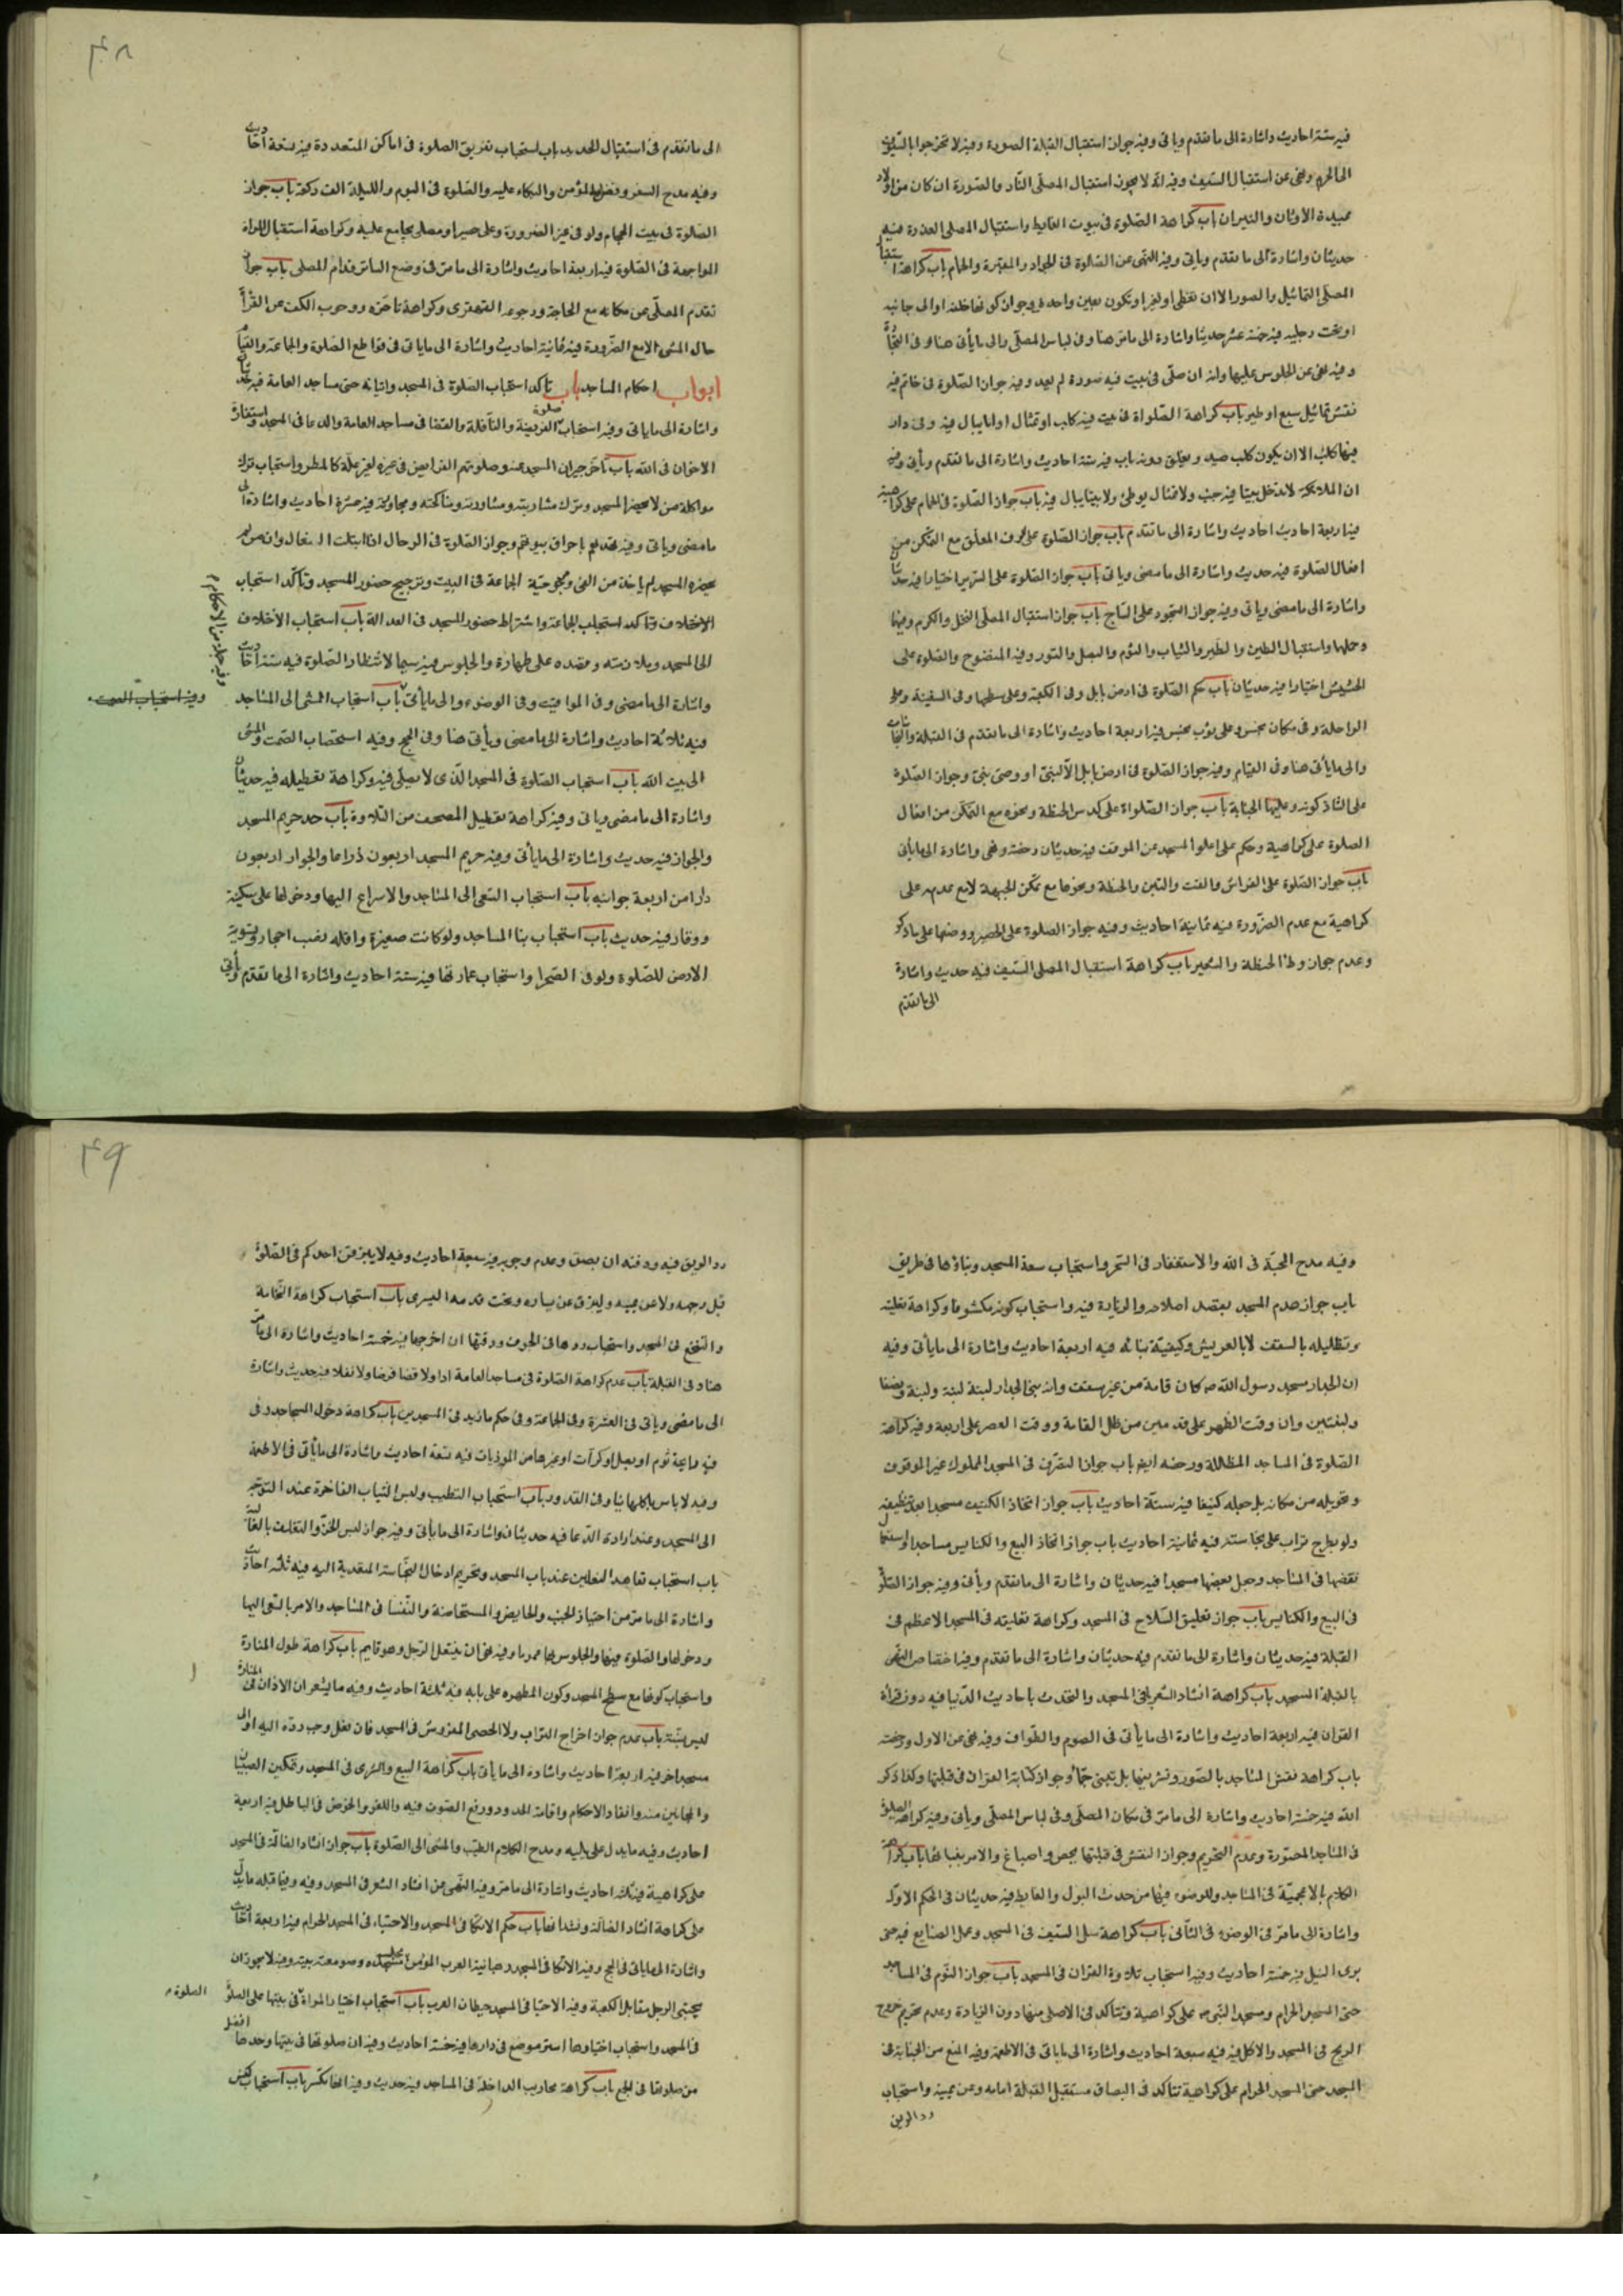 فيه ستة احاديث واشارة الى ما تقدم وياتى وفيه جواز استقبال القبلة الصورة وفيه لا تخرجوا بالسيوف
الى الحرم ونهى عن استقبال السيف وفيه انه لا يجوز استقبال المصلى النار والصورة ان كان من اولاد
عبيدة الاوثان والنيران باب كراهة الصلوة فى بيوت الغايط واستقبال المصلى العذرة فيه
حديثان واشارة الى ما تقدم وياتى وفيه النهى عن الصلوة فى الجواد والمقبرة والحمام باب كراهة استقبال
المصلى التماثيل والصور الا ان تغطى او تغير او تكون بعين واحدة وجواز كونها خلفه او الى جانبه
او تحت رجليه فيه خمسة عشر حديثا واشارة الى ما مر هنا وفى لباس المصلى والى ما يأتى هنا وفى التجارة
وفيه نهى عن الجلوس عليها وانه ان صلى فى بيت فيه صورة لم يعد وفيه جواز الصلوة فى خاتم فيه
نقش تماثيل سبع او طير باب كراهة الصلواة فى بيت فيه كلب او تمثال او انا يبال فيه وفى دار
فيها كلب الا ان يكون كلب صيد ويغلق دونه باب فيه ستة احاديث واشارة الى ما تقدم ويأتى وفيه
ان الملائكة لا تدخل بيتا فيه جنب ولا تمثال يوطئ ولا بيتا يبال فيه باب جواز الصلوة فى الحمام على كراهية
فيه اربعة احاديث احاديث واشارة الى ما تقدم باب جواز الصلوة على الرف المعلق مع التمكن من
افعال الصلوة فيه حديث واشارة الى ما مضى وياتى باب جواز الصلوة على السرير اختيارا فيه حديثان
واشارة الى ما مضى وياتى وفيه جواز السجود على الساج باب جواز استقبال المصلى النخل والكرم وفيها
وحملها واستقبال الطين والطير والثياب والثوم والبصل والتور وفيه المنضوح والصلوة على
الحشيش اختيارا فيه حديثان باب حكم الصلوة فى ارض بابل وفى الكعبة وعلى سطحها وفى السفينة وعلى
الراحلة وفى مكان نجس وعلى ثوب نجس فيه اربعة احاديث واشارة الى ما تقدم فى القبلة والنجاسات
والى ما يأتى هنا وفى القيام وفيه جواز الصلوة فى ارض بابل الا لنبى او وصى نبى وجواز الصلوة
على الشاذ كونه وعليها الجنابة باب جواز الصلواة على كدس الحنطة ونحوه مع التمكن من افعال
الصلوة على كراهية وحكم على اعلو المسجد عن الموقف فيه حديثان رخصة ونهى واشارة الى ما يأتى
باب جواز الصلوة على الفراش والقت والتبن والحنطة ونحوها مع تمكن الجبهة لا مع عدمه على
كراهية مع عدم الضرورة فيه ثمانية احاديث وفيه جواز الصلوة على الحصير ووضعها على ما ذكر
وعدم جواز وطأ الحنطة والشعير باب كراهة استقبال المصلى السيف فيه حديث واشارة
الى ما تقدم
۴۸
الى ما تقدم فى استقبال الحديد باب استحباب تفريق الصلوة فى اماكن المتعددة فيه تسعة احاديث
وفيه مدح السفر وفضل المؤمن والبكاء عليه والصلوة فى اليوم والليلة الف ركعة باب جواز
الصلوة فى بيت الحجام ولو فى غير الضرورة وعلى حصير او مصلى يجامع عليه وكراهة استقبال المراة
المواجهة فى الصلوة فيه اربعة احاديث واشارة الى ما مر فى وضع الساتر قدام المصلى باب جواز
تقدم المصلى عن مكانه مع الحاجة ورجوعه القهقرى وكراهة تاخره ووجوب الكف عن القرأة
حال المشى الا مع الضرورة فيه ثمانية احاديث واشارة الى ما ياتى فى قواطع الصلوة والجماعة والقيام
ابواب احكام المساجد باب تاكد استحباب الصلوة فى المسجد واتيانه حتى مساجد العامة فيه حديثان
واشارة الى ما ياتى وفيه استحباب صلوة الفريضة والنافلة والقضا فى مساجد العامة والدعا فى المسجد واستفادة
الاخوان فى الله باب تأخر جيران المسجد عنه وصلوتهم الفرايض فى غيره لغير علة كالمطر واستحباب ترك
مواكلة من لا يحضر المسجد وترك مشاربته ومشاورته ومناكحته ومجاورته فيه عشرة احاديث واشارة الى
ما مضى وياتى وفيه تهديدهم باحراق بيوتهم وجواز الصلوة فى الرحال اذا ابتلت النعال وان من لم
يحضره المسجد لم ياخذ من الفئ ومجوحية الجماعة فى البيت وترجيح حضور المسجد وتأكد استحباب
الاختلاف وتأكد استحباب الجماعة واشتراط حضور المسجد فى العدالة باب استحباب الاختلاف
الى المسجد وملازمته وقصده على طهارة والجلوس فيه سيما لانتظار الصلوة فيه ستة احاديث
واشارة الى ما مضى وفى المواقيت وفى الوضوء والى ما يأتى باب استحباب المشى الى المساجد
فيه ثلاثة احاديث واشارة الى ما مضى ويأتى هنا وفى الحج وفيه استحباب الصمت والمشى
الى بيت الله باب استحباب الصلوة فى المسجد الذى لا يصلى فيه وكراهة تعطيله فيه حديثان
واشارة الى ما مضى وياتى وفيه كراهة تعطيل المصحف من التلاوة باب حد حريم المسجد
والجوار فيه حديث واشارة الى ما يأتى وفيه حريم المسجد اربعون ذراعا والجوار اربعون
دارا من اربعة جوانبه باب استحباب السعى الى المساجد والاسراع اليها ودخولها على سكينة
ووقار فيه حديث باب استحباب بنا المساجد ولو كانت صغيرة واقله نصب احجار وتسوية
الارض للصلوة ولو فى الصحرا واستحباب عمارتها فيه ستة احاديث واشارة الى ما تقدم ويأتى
وفيه استحباب الصمت
وفيه مدح المحبة فى الله والاستغفار فى السحر واستحباب سعة المسجد وبناؤها فى طريق
باب جواز هدم المسجد بقصد اصلاحه والزيادة فيه واستحباب كونه مكشوفا وكراهة تعليته
وتظليله بالسقف لا بالعريش وكيفية بنائه فيه اربعة احاديث واشارة الى ما يأتى وفيه
ان الجدار مسجد رسول الله ص كان قامة من غير سقف وانه بنى الجدار لبنة لبنة ولبنة ونصفا
ولبنتين وان وقت الظهر على قدمين من ظل القامة ووقت العصر على اربعة وفيه كراهة
الصلوة فى المساجد المظللة ورخصة ايضا باب جواز التصرف فى المسجد المملوك غير الموقوف
وتحويله من مكانه بل جعله كنيفا فيه ستة احاديث باب جواز اتخاذ الكنيف مسجدا بعد تنظيفه
ولو بطرح تراب على نجاسته فيه ثمانية احاديث باب جواز اتخاذ البيع والكنايس مساجدا واستعمال
نقضها فى المساجد وجعل بعضها مسجدا فيه حديثان واشارة الى ما تقدم ويأتى وفيه جواز الصلوة
فى البيع والكنايس باب جواز تعليق السلاح فى المسجد وكراهة تعليقه فى المسجد الاعظم فى
القبلة فيه حديثان واشارة الى ما تقدم فيه حديثان واشارة الى ما تقدم وفيه اختصاص النهى
بالقبلة المسجد باب كراهة انشاد الشعر فى المسجد والتحدث باحاديث الدنيا فيه دون قرأة
القرآن فيه اربعة احاديث واشارة الى ما يأتى فى الصوم والطواف وفيه نهى عن الاول ورخصة
باب كراهة نقش المساجد بالصور وتشريفها بل تبنى جما وجواز كتابة القرآن فى قبلتها وكذا ذكر
الله فيه خمسة احاديث واشارة الى ما مر فى مكان المصلى وفى لباس المصلى ويأتى وفيه كراهة الصلوة
فى المساجد المصورة وعدم التحريم وجواز النقش فى قبلتها بجص واصباغ والامر ببنائها باب كراهة
الكلام بالاعجمية فى المساجد وللوضوء فيها من حدث البول والغايط فيه حديثان فى الحكم الاول
واشارة الى ما مر فى الوضوء فى الثانى باب كراهة سل السيف فى المسجد وعمل الصنايع فيه حتى
برى النبل فيه خمسة احاديث وفيه استحباب تلاوة القرآن فى المسجد باب جواز النوم فى المساجد
حتى المسجد الحرام ومسجد النبى ص على كراهية وتتأكد فى الاصلى منها دون الزيادة وعدم تحريم خروج
الريح فى المسجد والاكل فيه فيه سبعة احاديث واشارة الى ما ياتى فى الاطعمة وفيه المنع من الجنابة فى
المسجد حتى المسجد الحرام على كراهية تتأكد فى البصاق مستقبل القبلة امامه وعن يمينه واستحباب
رد الريق
۴۹
رد الريق فيه ودفنه ان بصق وعدم وجوبه فيه سبعة احاديث وفيه لا يبزقن احدكم فى الصلوة
قبل وجهه ولا عن يمينه وليبزق عن يساره وتحت قدمه اليسرى باب استحباب كراهة النخامة
والتنخع فى المسجد واستحباب ردها فى الجوف ودفنها ان اخرجها فيه خمسة احاديث واشارة الى ما مر
هنا وفى القبلة باب عدم كراهة الصلوة فى مساجد العامة ادا ولا قضا فرضا ولا نفلا فيه حديث واشارة
الى ما مضى وياتى فى العشرة وفى الجماعة وفى حكم مازيد فى المسجدين باب كراهة دخول المساجد وفى
فيه رايحة ثوم او بصل او كراث او غيرها من الموذيات فيه تسعة احاديث واشارة الى ما يأتى فى الاطعمة
وفيه لا باس باكلها نيا وفى القدور باب استحباب التطيب ولبس الثياب الفاخرة عند التوجه
الى المسجد وعند ارادة الدعا فيه حديثان واشارة الى ما يأتى وفيه جواز لبس الخز والتغلف بالغالية
باب استحباب تعاهد النعلين عند باب المسجد وتحريم ادخال النجاسة المتعدية اليه فيه ثلثة احاديث
واشارة الى ما مر من اجتياز الجنب والحايض والمستحاضة والنفسا فى المساجد والامر بالسعى اليها
ودخولها والصلوة فيها والجلوس بها عموما وفيه نهى ان ينتعل الرجل وهو قايم باب كراهة طول المنارة
واستحباب كونها مع سطح المسجد وكون المطهرة على بابه فيه ثلثة احاديث وفيه ما يشعر ان الاذان فى المنارة
ليس بسنة باب عدم جواز اخراج التراب ولا الحصى المفروش فى المسجد فان فعل وجب رده اليه او الى
مسجد اخر فيه اربعة احاديث واشارة الى ما يأتى باب كراهة البيع والشرى فى المسجد وتمكين الصبيان
والمجانين منه وانفاذ الاحكام واقامة الحدود ورفع الصوت فيه واللغو والخوض فى الباطل فيه اربعة
احاديث وفيه ما يدل على يليه ومدح الكلام الطيب والمشى الى الصلوة باب جواز انشاد الضالة فى المسجد
على كراهية فيه ثلثة احاديث واشارة الى ما مر وفيه النهى عن انشاد الشعر فى المسجد وفيه وفيما قبله ما يدل
على كراهة انشاد الضالة ونشدانها باب حكم الاتكا فى المسجد والاحتباء فى المسجد الحرام فيه اربعة احاديث
واشارة الى ما ياتى فى الحج وفيه الاتكا فى المسجد رهبانية العرب المؤمن مجلسه مسجده وصومعته بيته وفيه لا يجوز ان
يحتبى الرجل مقابل الكعبة وفيه الاحتبا فى المسجد حيطان العرب باب استحباب اختيار المراة فى بيتها على الصلوة
الصلوة
فى المسجد واستحباب اختيارها استر موضع فى دارها فيه خمسة احاديث وفيه ان صلوتها فى بيتها وحدها افضل
من صلوتها فى الجمع باب كراهة محاريب الداخلة فى المساجد فيه حديث وفيه انها تكسر باب استحباب كنس